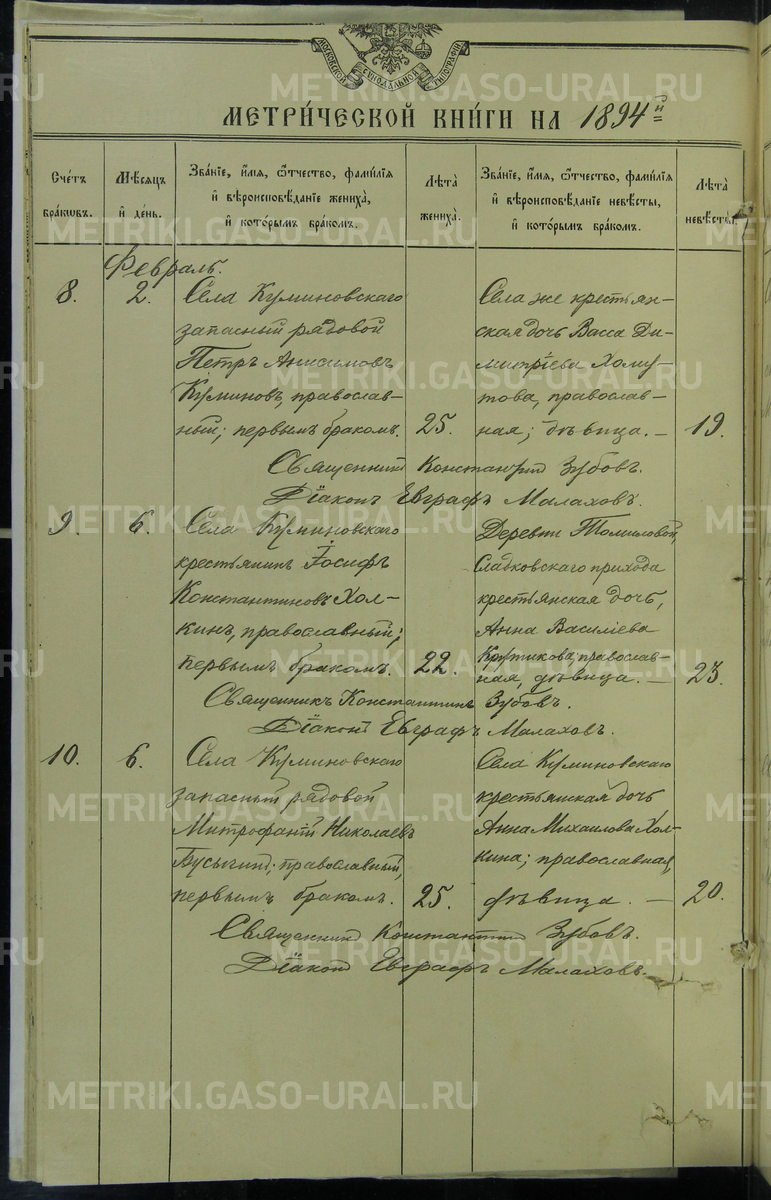 МОСКОВСКОЙ СѴНОДАЛЬНОЙ ТИПОГРАФІИ
МЕТРИ́ЧЕСКОЙ КНИ́ГИ НА 1894й
Сче́тъ бра́кѡвъ.
Мѣ́сѧцъ и҆ де́нь.
Зва́нїе, и҆́мѧ, ѻ҆́тчество, фамѝлїѧ
и҆ вѣроисповѣ́данїе женихà,
и҆ кото́рымъ бра́комъ.
Лѣ́та женихà.
Зва́нїе, и҆́мѧ, ѻ҆́тчество, фамѝлїѧ
и҆ вѣроисповѣ́данїе невѣ́сты,
и҆ кото́рымъ бра́комъ.
Лѣ́та невѣ́сты.
Февраль.
8. 2. Села Куминовскаго
запасный рядовой
Петръ Анисимовъ
Куминовъ, православ-
ный; первымъ бракомъ. 25.
Села же крестьян-
ская дочь Васса Ди-
митріева Хому-
това, православ-
ная; дѣвица. — 19.
Священникъ Константинъ Зубовъ.
Діаконъ Евграфъ Малаховъ.
9. 6. Села Куминовскаго
крестьянинъ Іосифъ
Константиновъ Хол-
кинъ, православный;
первымъ бракомъ. 22.
Деревни Томиловой,
Сладковскаго прихода
крестьянская дочь,
Анна Василіева
Крутикова; православ-
ная, дѣвица. — 23.
Священникъ Константинъ Зубовъ.
Діаконъ Евграфъ Малаховъ.
10. 6. Села Куминовскаго
запасный рядовой
Митрофаній Николаевъ
Бусыгинъ; православный,
первымъ бракомъ. 25.
Села Куминовскаго
крестьянская дочь
Анна Михаилова Хол-
кина; православная,
дѣвица. — 20.
Священникъ Константинъ Зубовъ.
Діаконъ Евграфъ Малаховъ.
METRIKI.GASO-URAL.RU